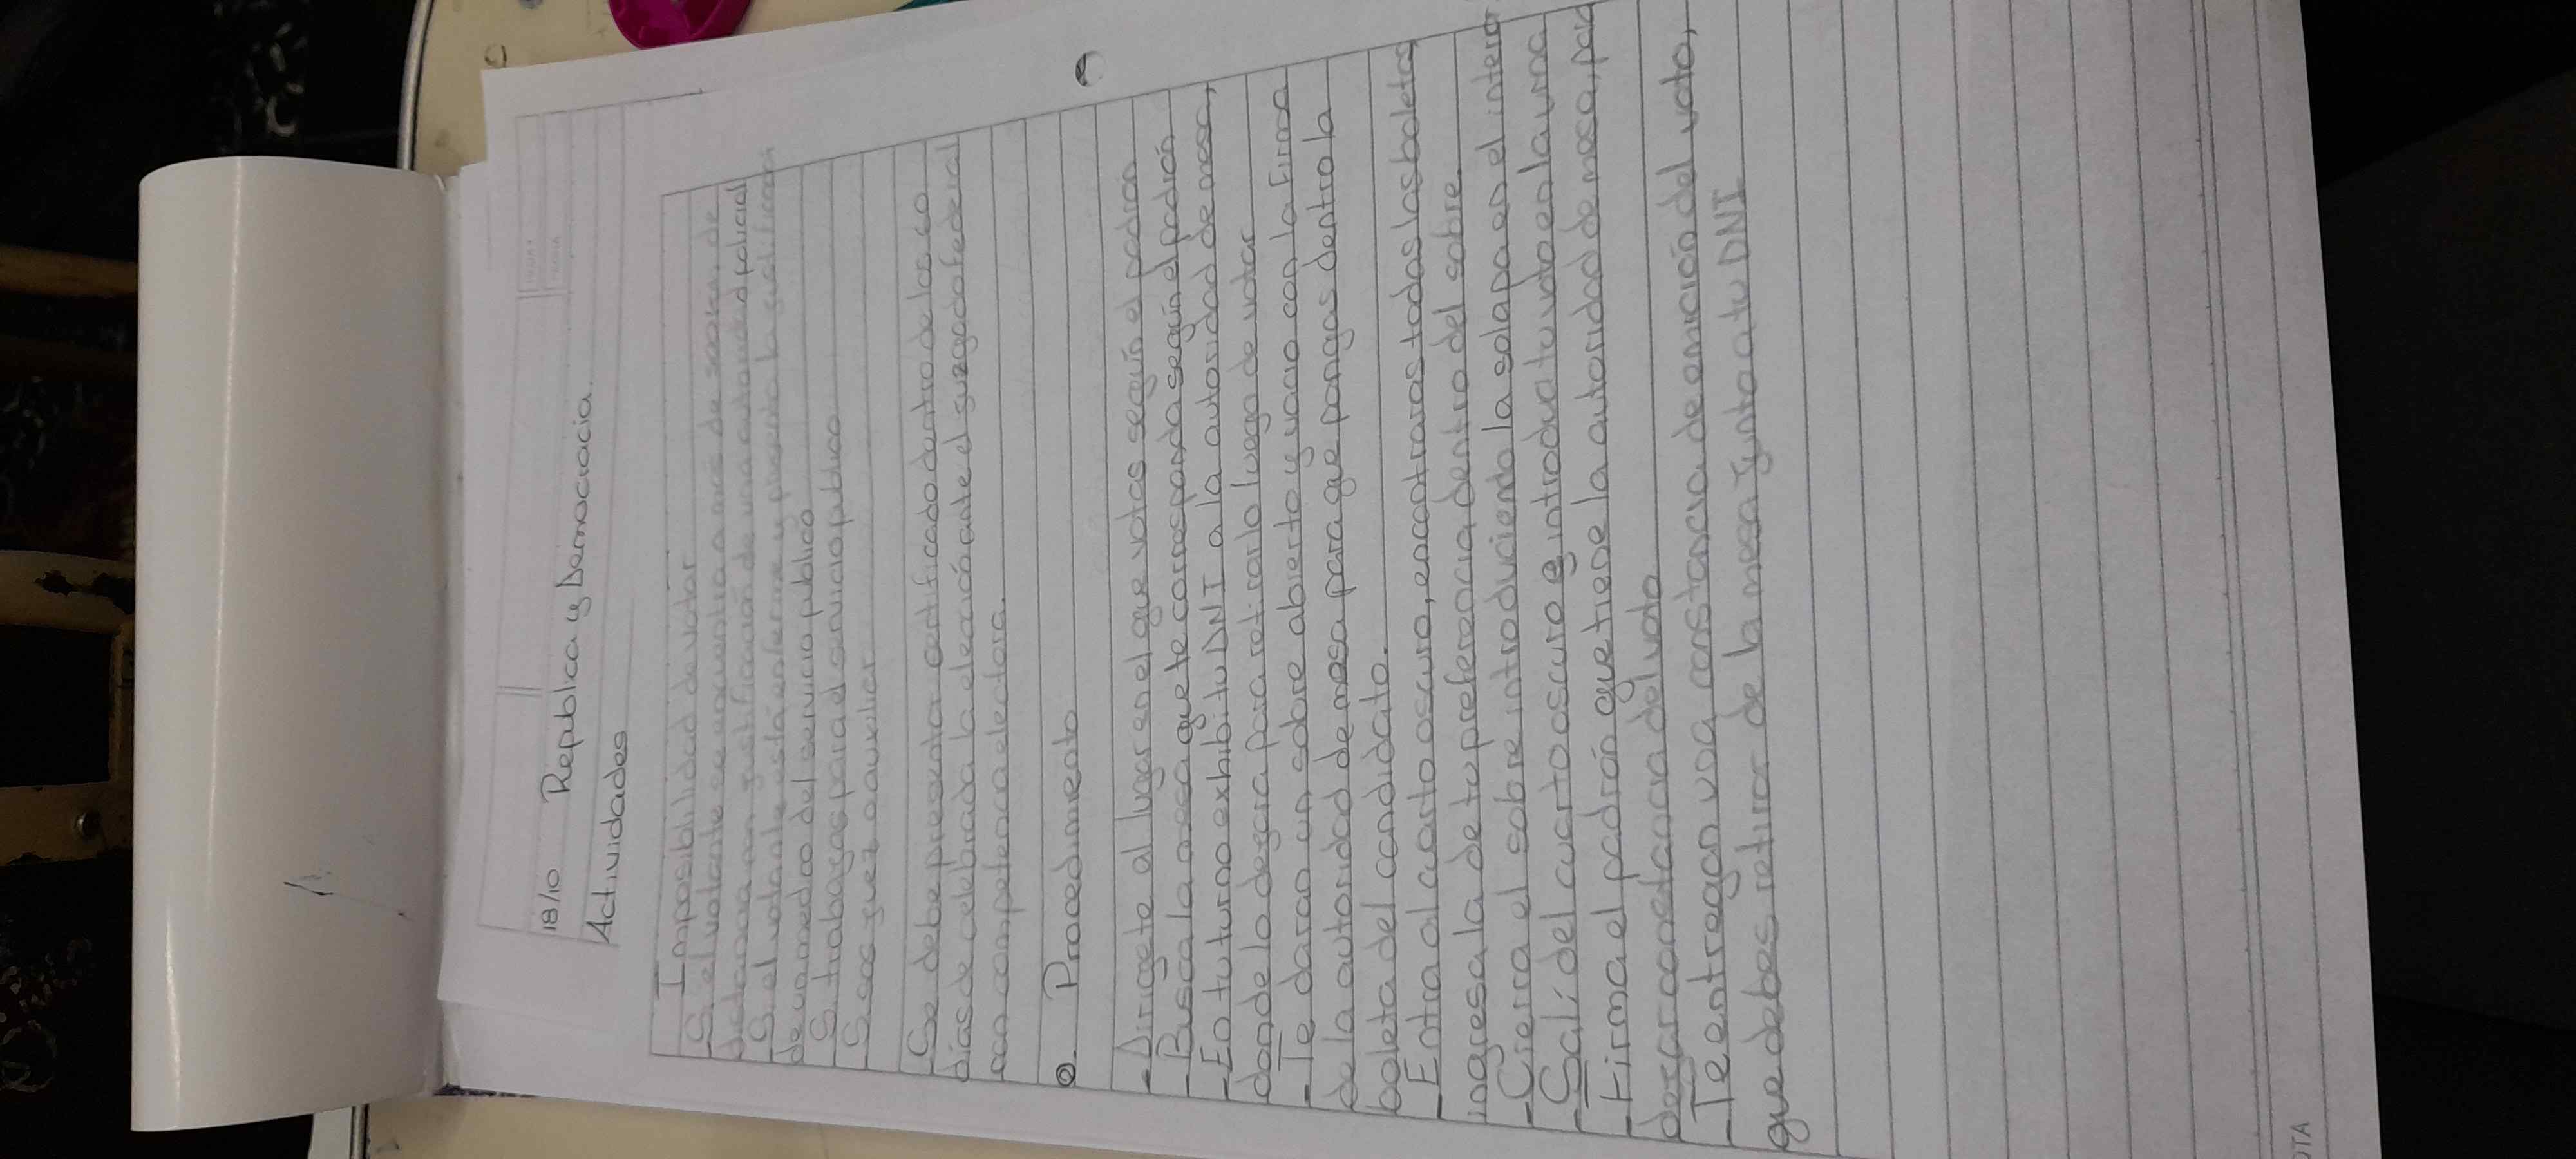 18/10 Republica y Democracia.
Actividades
Imposibilidad de votar
Si el votante se encuentra a mas de de
distancia con justificación de una autoridad policial
Si el votante está enfermo y presenta la
de un medio del servicio publico
Si trabajas para el servicio publico
Si sos juez o auxiliar
Se debe presentar certificado dentro de los 60
días de celebrada la elección ante el juzgado federal
con competencia electora.
Procedimiento
- Dirigete al lugar en el que votas según el padron
- Busca la mesa que te corresponda según el padrón
- En tu turno exhibi tu DNI a la autoridad de mesa,
donde lo dejara para retirarlo luego de votar
- Te daran un sobre abierto y vacio con la firma
de la autoridad de mesa para que pongas dentro la
boleta del candidato.
- Entra al cuarto oscuro, encontraras todas las boletas,
ingresa la de tu preferencia dentro del sobre.
- Cierra el sobre introduciendo la solapa en el interior
- Salí del cuarto oscuro e introduci tu voto en la urna
- Firma el padrón que tiene la autoridad de mesa, para
dejar constancia del voto
- Te entregan una constancia de emición del voto,
que debes retirar de la mesa junto a tu DNI
OTA